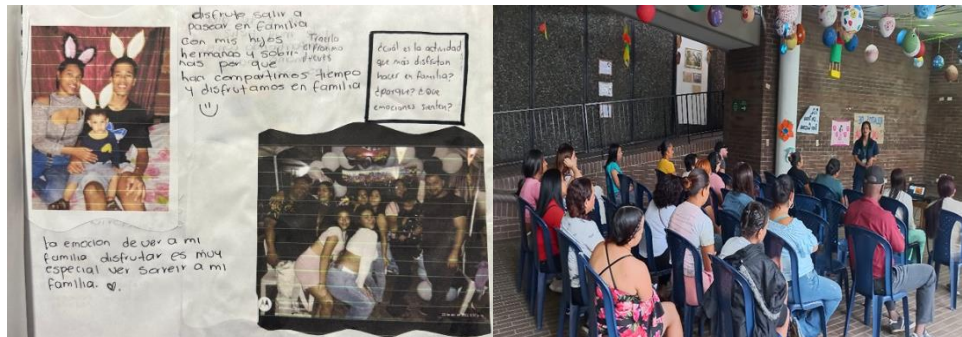 disfruto salir a
pasear en familia
con mis hijos
hermanos y sobri-
nas por que
hay compartimos tiempo
y disfrutamos en familia
Traerlo
el proximo
jueves
¿cuál es la actividad
que más disfrutan
hacer en familia?
¿porque? ¿Que
emociones sienten?
la emocion de ver a mi
familia disfrutar es muy
especial ver sonreir a mi
familia.